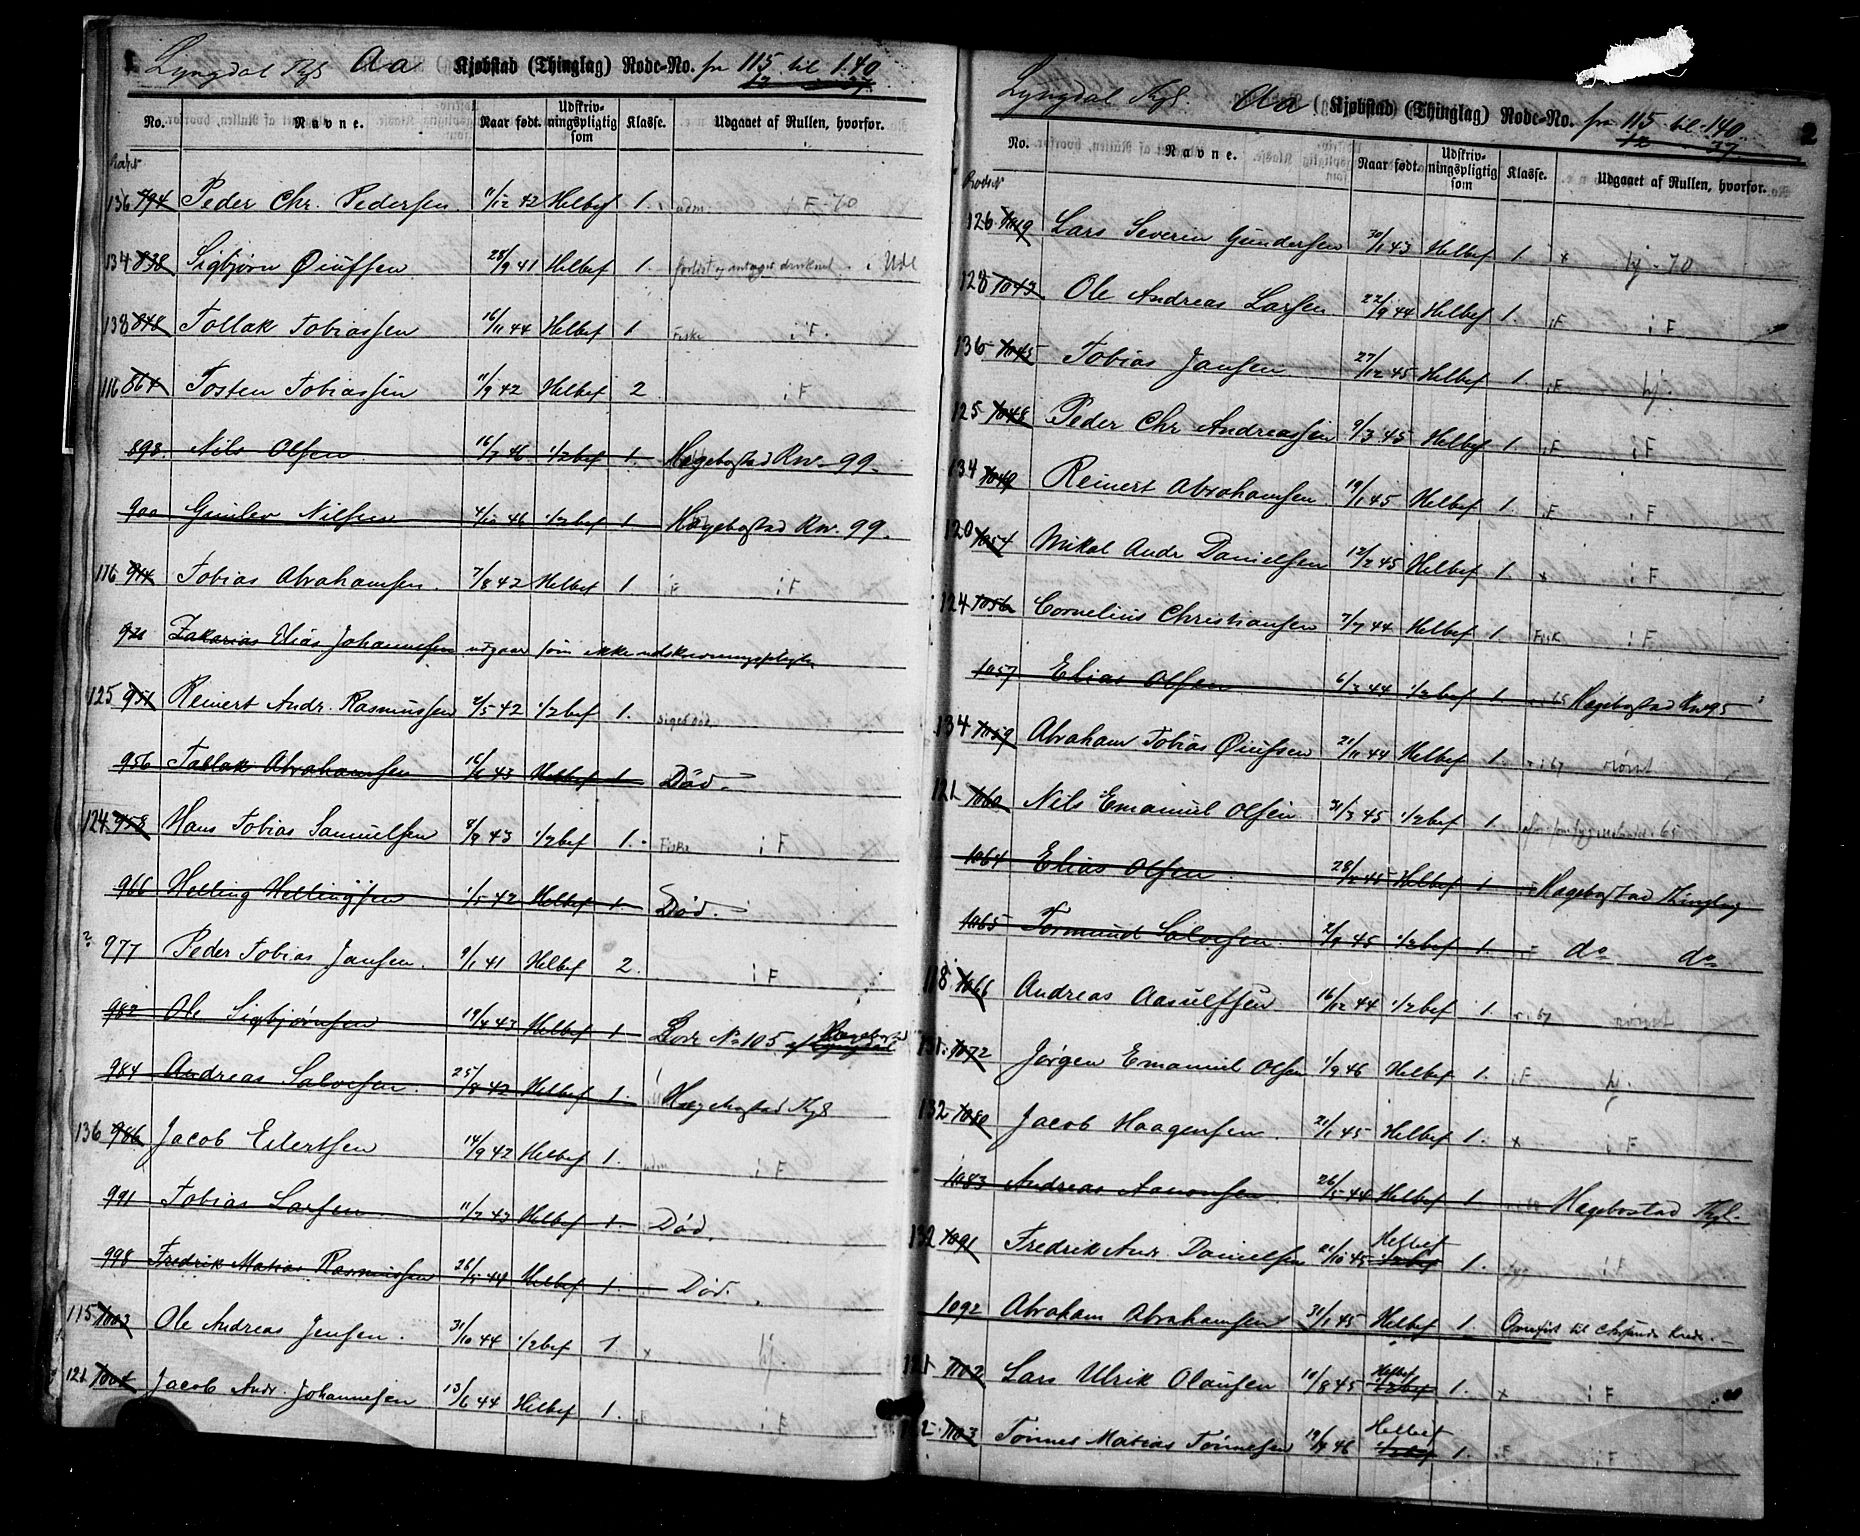 1 Lyngdal Tgs Aa Kjøbstad (Thinglag) Rode-No. fra 115 til 140
12 37
No. Navne. Naar født. Udskrivningspligtig som Klasse. Udgaaet af Rullen, hvorfor.
Rode No
136 794 Peder Chr. Pedersen 11/12 42 Helbef 1. adm. i F - 70
134 838 Sigbjørn Øiufsen 28/9 41 Helbef 1. i Udl
138 848 Tollak Tobiassen 16/11 44 Helbef 1 Fiske i F.
116 864 Tosten Tobiassen 11/9 42 Helbef 2 i F
898. Nils Olsen 16/7 46 1/2bef 1. Hægebostad Rw. 99.
900 Gunlev Nilsen 4/10 46 1/2bef 1 Hægebostad Rw. 99.
116 944 Tobias Abrahamsen. 7/8 42 Helbef 1. F i F
921 Zakarias Elias Johannesen udgaar som ikke udskrivningspligtig
125 951 Reinert Andr. Rasmussen 2/5 42 1/2bef 1. siges død
956 Tallak Abrahamsen 16/6 43 Helbef 1 Død.
124 958 Hans Tobias Samuelsen 8/9 43 1/2bef 1. Fiske i F
966 Helling Hellingsen 1/5 42 Helbef 1. Død.
? 977 Peder Tobias Jansen. 9/1 41 Helbef 2. i F
982 Ole Sigbjørnsen 19/4 43 Helbef 1 Rode No 105 af Lyngdal Hægebostad
984 Andreas Salvesen. 25/8 42 Helbef 1. Hægebostad Tgs
136 986 Jacob Eilertsen 14/9 42 Helbef 1. adm i F
991 Tobias Larsen 11/7 43 Helbef 1. Død.
998 Fredrik Matias Rasmussen 26/5 44 Helbef 1. Død.
115 1002 Ole Andreas Jensen. 31/10 44 1/2bef 1. x hj.
121 1004 Jacob Andr. Johannesen 13/6 44 Helbef 1. i F
Lyngdal Tgs. Aa Kjøbstad (Thinglag) Rode-No. fra 115 til 140 2
12 37
No. Navne. Naar født. Udskrivningspligtig som Klasse. Udgaaet af Rullen, hvorfor.
Rode No
126 1019 Lars Severin Gundersen 30/1 43 Helbef 1 x hj - 70
128 1043 Ole Andreas Larsen 22/9 44 Helbef 1. F i F
136 1045 Tobias Jansen 27/12 45 Helbef 1. F hj.
125 1048 Peder Chr Andreassen 9/3 45 Helbef 1. F i F
134 1049 Reinert Abrahamsen 19/1 45 Helbef 1. F i F
120 1054 Mikal Andr Danielsen 12/2 45 Helbef 1. x i F
124 1056 Cornelius Christiansen 7/7 44 Helbef 1. Fisk i F
1057 Elias Olsen 6/2 44 1/2bef 1. 65 Hægebostad Rw 95
134 1059 Abraham Tobias Øiufsen 21/11 44 Helbef 1. r i 67 rømt
121 1060 Nils Emanuel Olsen 31/3 45 1/2bef 1. 65
1064 Elias Olsen. 28/2 45 Helbef 1 Hægebostad Thinglag
1065 Tormund Salvesen. 2/9 45 1/2bef 1. do do
118 1066 Andreas Aasulfsen 16/12 44 1/2bef 1. r i 67 rømt
131 1072 Jørgen Emanuel Olsen 1/9 46 Helbef 1. F hj.
132 1080 Jacob Haagensen. 21/1 45 Helbef 1. x i F
1083 Andreas Aanonsen. 26/5 44 Helbef 1 Hægebostad Tgl.
132 1091 Fredrik Andr. Danielsen 21/10 45 1/2bef Helbef 1. i F
1092 Abraham Abrahamsen 31/1 45 Helbef 1. Overført til Chrsands Kreds.
121 1102 Lars Ulrik Olausen 10/8 45 1/2bef Helbef 1. x i F
1103 Tønnes Matias Tønnesen 19/9 46 1/2bef Helbef 1. F i F